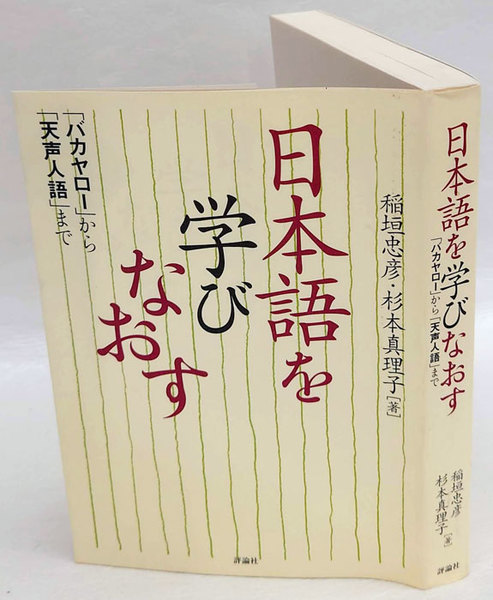 日本語を
学び
なおす
「バカヤロー」から
「天声人語」まで
稲垣忠彦・杉本真理子[著]
評論社
日本語を学びなおす
「バカヤロー」から「天声人語」まで
稲垣忠彦
杉本真理子[著]
評論社